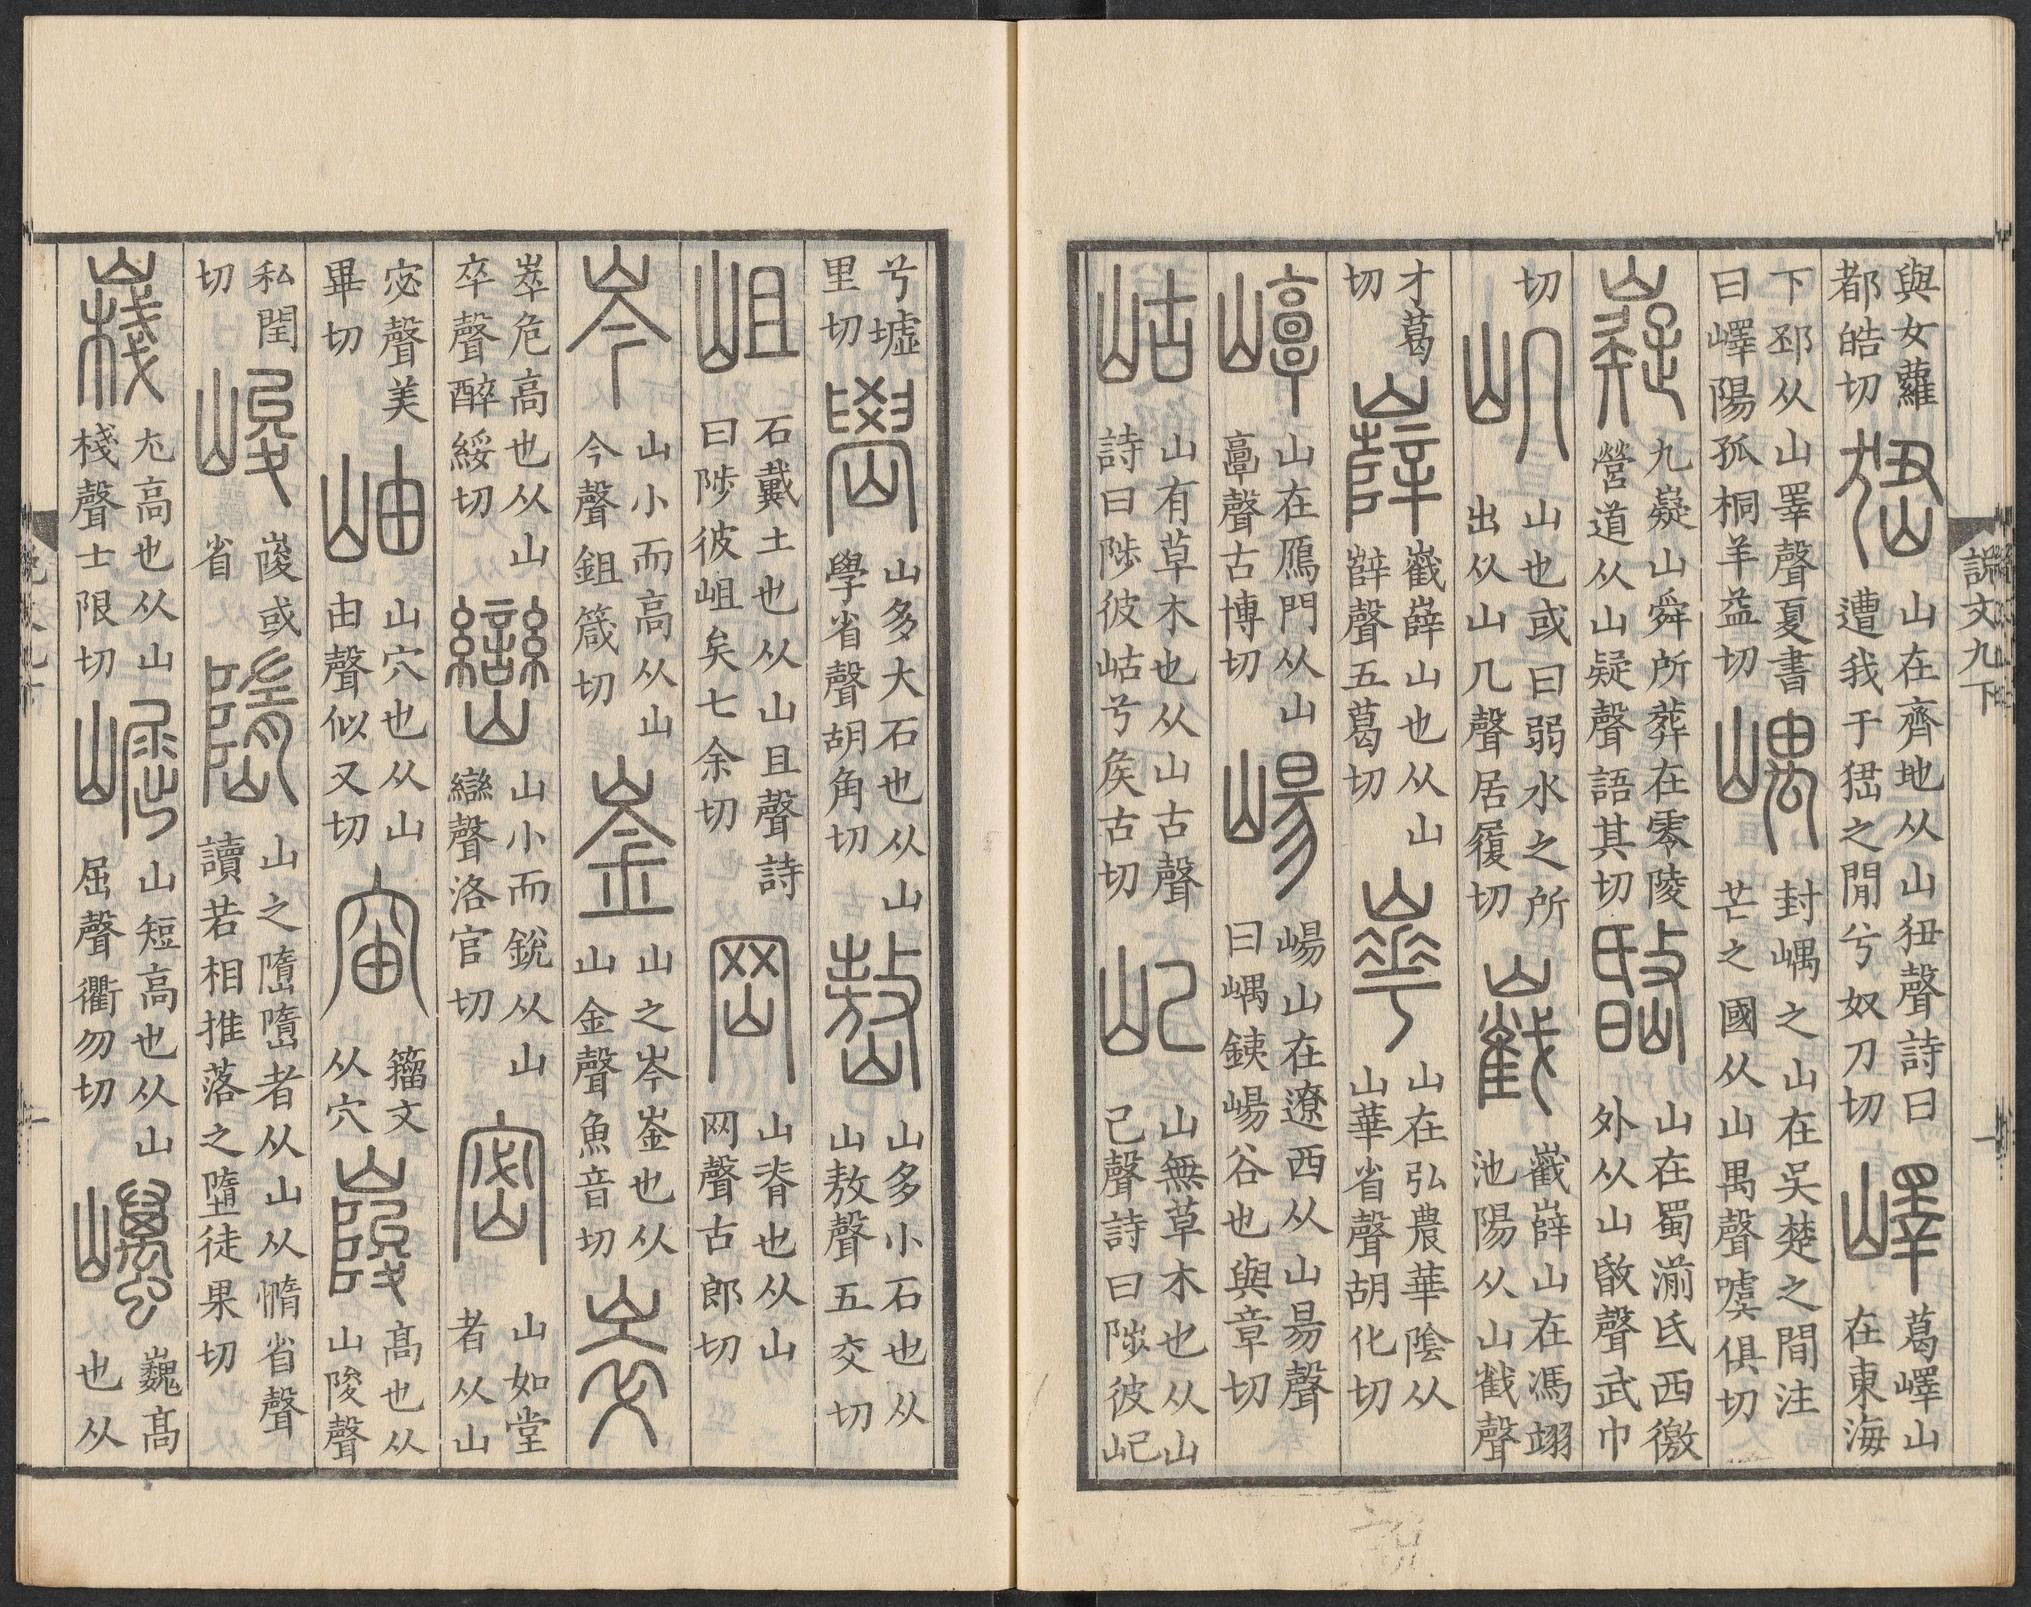 說文九下
一
與女蘿都皓切 峱 山在齊地从山狃聲詩曰遭我于峱之閒兮奴刀切 嶧 葛嶧山在東海
下邳从山睪聲夏書曰嶧陽孤桐羊益切 嵎 封嵎之山在吳楚之間汪芒之國从山禺聲噳俱切
嶷 九嶷山舜所葬在零陵營道从山疑聲語其切 㟭 山在蜀湔氐西徼外从山敃聲武巾
切 屼 山也或曰弱水之所出从山几聲居履切 巀 巀嶭山在馮翊池陽从山截聲
才葛切 嶭 巀嶭山也从山辥聲五葛切 崋 山在弘農華陰从山華省聲胡化切
崞 山在鴈門从山𩫏聲古博切 崵 崵山在遼西从山昜聲曰嵎銕崵谷也與章切
岵 山有草木也从山古聲詩曰陟彼岵兮矦古切 屺 山無草木也从山己聲詩曰陟彼屺
兮墟里切 嶨 山多大石也从山學省聲胡角切 嶅 山多小石也从山敖聲五交切
岨 石戴土也从山且聲詩曰陟彼岨矣七余切 岡 山脊也从山网聲古郎切
岑 山小而高从山今聲鉏箴切 崟 山之岑崟也从山金聲魚音切 崒
崒危高也从山卒聲醉綏切 巒 山小而銳从山䜌聲洛官切 密 山如堂者从山
宓聲美畢切 岫 山穴也从山由聲似又切 𥥉 籀文从穴 𡼥 高也从山陵聲
私閏切 峻 𡼥或省 𡼁 山之𡼁𡼁者从山从憜省聲讀若相推落之㙐徒果切
嶘 尤高也从山棧聲士限切 崛 山短高也从山屈聲衢勿切 巁 巍高也从